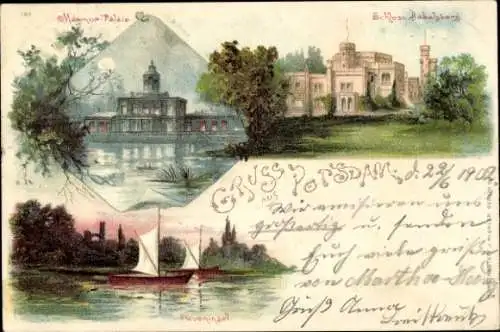 Marmor-Palais
Schloss Babelsberg
GRUSS AUS POTSDAM, d. 22/6 1902
Wir amüsieren uns
großartig u. senden
Euch viele grüße
von Martha
Gruß Anna
Pfaueninsel